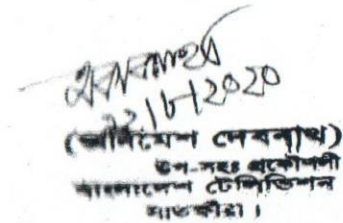 ২২/৮/২০২০
(অনিমেশ দেবনাথ)
উপ-সহঃ প্রকৌশলী
বাংলাদেশ টেলিভিশন
সাতক্ষীরা।